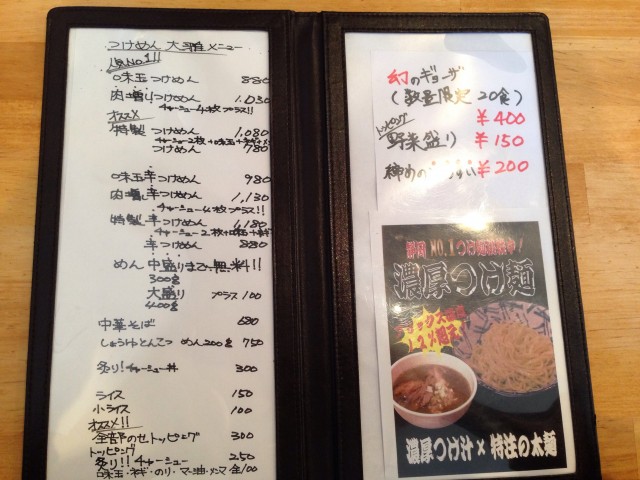 つけめん 大雅メニュー
人気NO.1!!
味玉つけめん 880
肉増しつけめん 1,030
チャーシュー4枚プラス!!
オススメ
特製 つけめん 1,080
チャーシュー2枚+味玉+ネギ
つけめん 780
味玉辛つけめん 980
肉増し辛つけめん 1,130
チャーシュー4枚プラス!!
特製辛つけめん 1,180
チャーシュー2枚+味玉+ネギ
辛つけめん 880
めん 中盛りまで無料!!
300g
大盛り プラス100
400g
中華そば 680
しょうゆとんこつ めん200g 750
炙り!チャーシュー丼 300
ライス 150
小ライス 100
オススメ!!
全部のせトッピング 300
トッピング
炙り!!チャーシュー 250
味玉・ネギ・のり・マー油・メンマ・各100
幻のギョーザ
(数量限定 20食)
¥400
トッピング
野菜盛り ¥150
締めの ¥200
静岡 NO.1つけ麺
濃厚つけ麺
濃厚つけ汁×特注の太麺